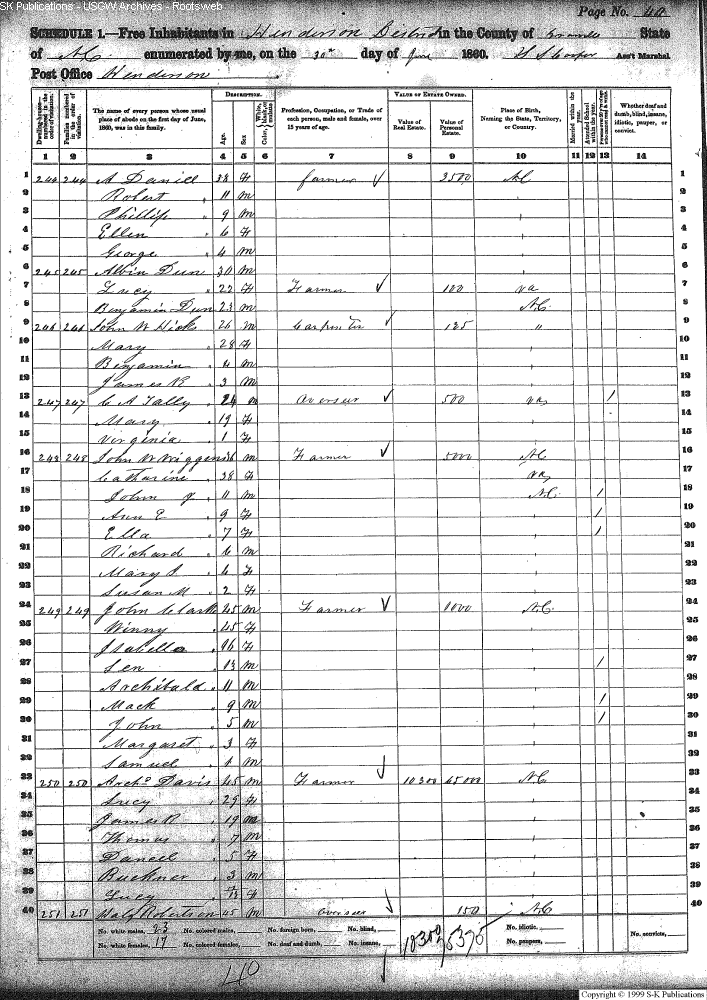 SK Publications - USGW Archives - Rootsweb
Page No. 40
SCHEDULE 1.—Free Inhabitants in Henderson District in the County of Granville State
of NC enumerated by me, on the 30th day of June 1860. Ass't Marshal
Post Office Henderson
Dwelling-houses—numbered in the order of visitation.
Families numbered in the order of visitation.
The name of every person whose usual place of abode on the first day of June, 1860, was in this family.
DESCRIPTION.
Age.
Sex
Color, White, black, or mulatto
Profession, Occupation, or Trade of each person, male and female, over 15 years of age.
VALUE OF ESTATE OWNED.
Value of Real Estate.
Value of Personal Estate.
Place of Birth, Naming the State, Territory, or Country.
Married within the year.
Attended School within the year.
Whether deaf and dumb, blind, insane, idiotic, pauper, or convict.
1 2 3 4 5 6 7 8 9 10 11 12 13 14
1 244 244 A Daniel 38 F farmer 3500 NC 1
2 Robert 11 m 2
3 Phillip 9 m 3
4 Ellen 6 F 4
5 George 4 m 5
6 245 245 Albin Dun 30 m 6
7 Lucy 22 F Farmer 100 va 7
8 Benjamin Dun 23 m NC 8
9 246 246 John W Hicks 26 m Carpenter 125 " 9
10 Mary 28 F 10
11 Benjamin 4 m 11
12 James R 3 m 12
13 247 247 C A Tally 24 m Overseer 500 va / 13
14 Mary 19 F 14
15 Virginia 1 F 15
16 248 248 John W Wiggens m Farmer 5000 NC 16
17 Catharine 38 F va 17
18 John 11 m NC / 18
19 Ann E 9 F / 19
20 Ella 7 F / 20
21 Richard 6 m 21
22 Mary S 4 F 22
23 Susan M 2 F 23
24 249 249 John Clark 45 m Farmer 1000 NC 24
25 Winny 45 F 25
26 Isabella 16 F 26
27 Len 13 m / 27
28 Archibald 11 m 28
29 Mack 9 m / 29
30 John 5 m / 30
31 Margaret 3 F 31
32 Samuel 1 m 32
33 250 250 Archd Davis 45 m Farmer 10300 45000 NC 33
34 Lucy 29 F 34
35 James R 19 m 35
36 Thomas 7 m 36
37 Daniel 5 F 37
38 Buckner 3 m 38
39 Lucy F 39
40 251 251 Robertson 45 m overseer 150 NC 40
No. white males, 23 No. colored males, No. foreign born, No. blind, No. idiotic, No. convicts,
No. white females, 17 No. colored females, No. deaf and dumb, No. insane, No. paupers,
10300
40
Copyright © 1999 S-K Publications